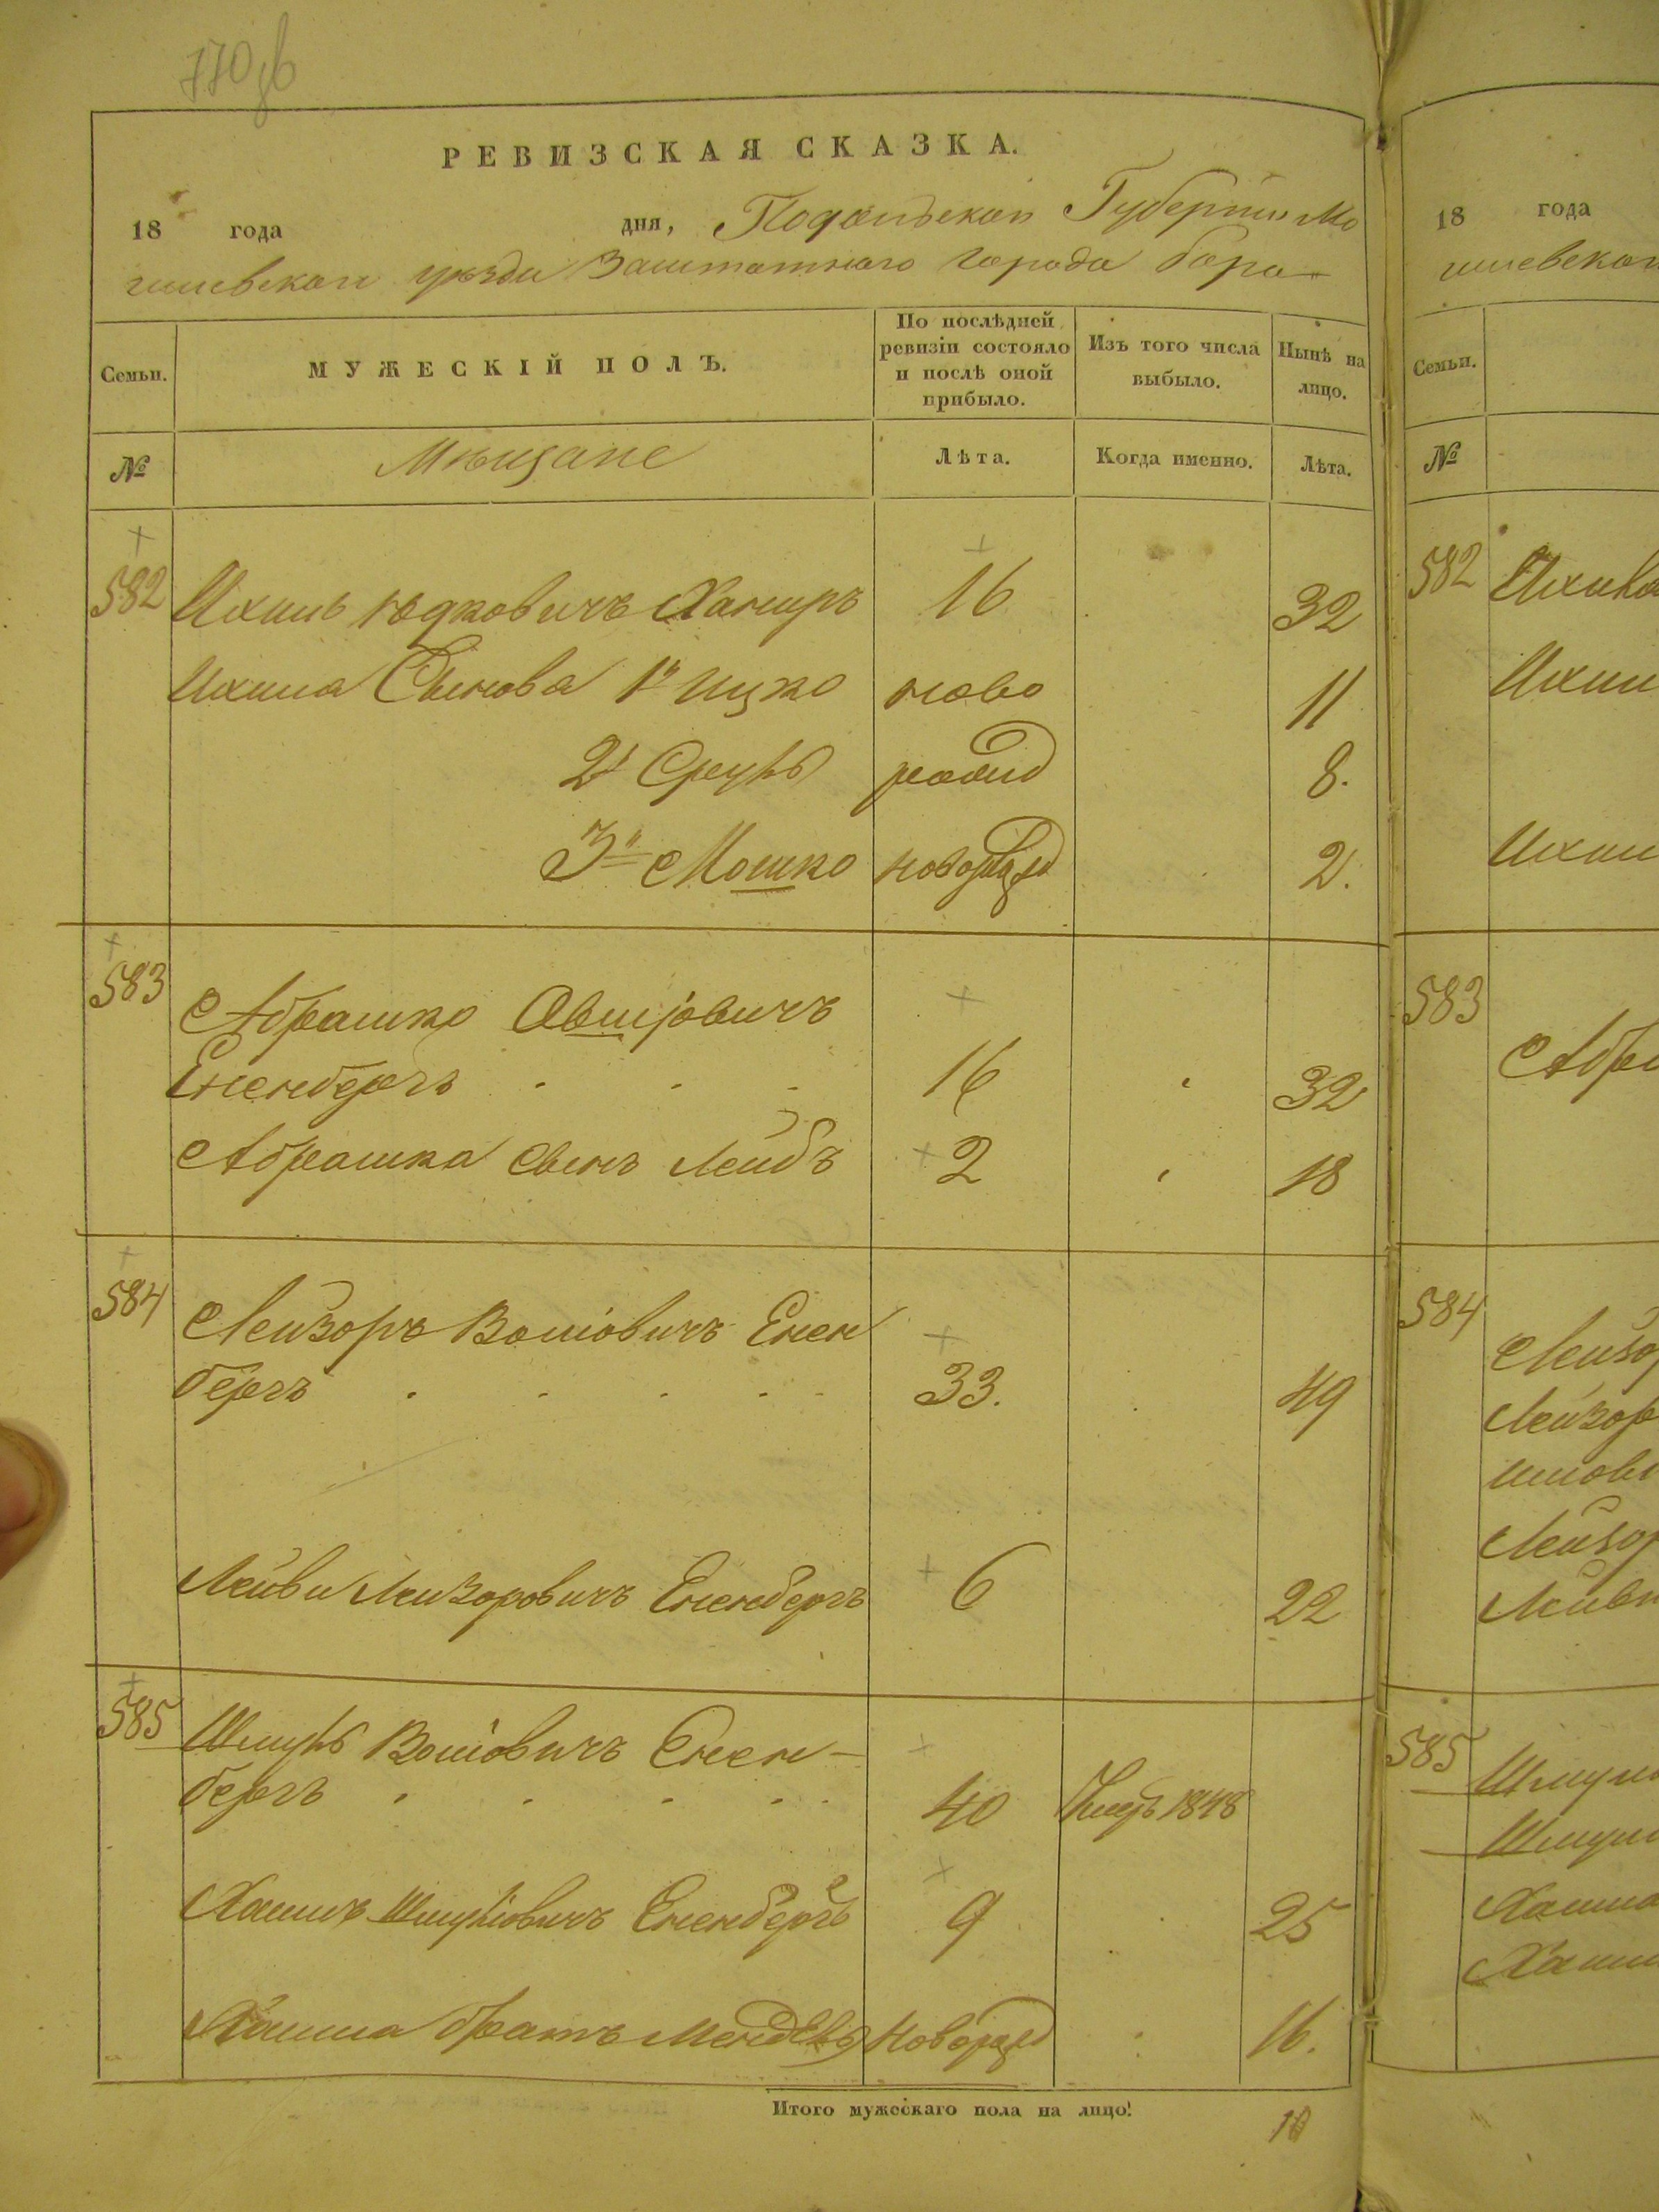 770 об
РЕВИЗСКАЯ СКАЗКА.
18 года дня, Подольской Губерніи Мо
гилевскаго уѣзда Заштатнаго города бара
Семьи. МУЖЕСКІЙ ПОЛЪ. По послѣдней ревизіи состояло и послѣ оной прибыло. Изъ того числа выбыло. Нынѣ на лицо.
№ Мѣщане Лѣта. Когда именно. Лѣта.
582 Ихиль Юдковичъ 16 32
Ихиля Сынова 1й Ицко ново 11
2й Сруль рожд 8.
3й Мошко новорожд 2.
583 Абрашко
Ененбергъ 16 32
Абрашка сынъ Лейбъ 2 18
584 Лейзоръ Волiовичъ Енен
бергъ 33. 49
Лейви Лейзоровичъ Ененбергъ 6 22
585 Шмуль Волiовичъ Енен-
бергъ 40 Умеръ 1848
Хаимъ Шмулiовичъ Ененбергъ 9 25
Хаима братъ Мендель Новорожд 16.
Итого мужескаго пола на лицо! 10
18 года
582
583
584
585